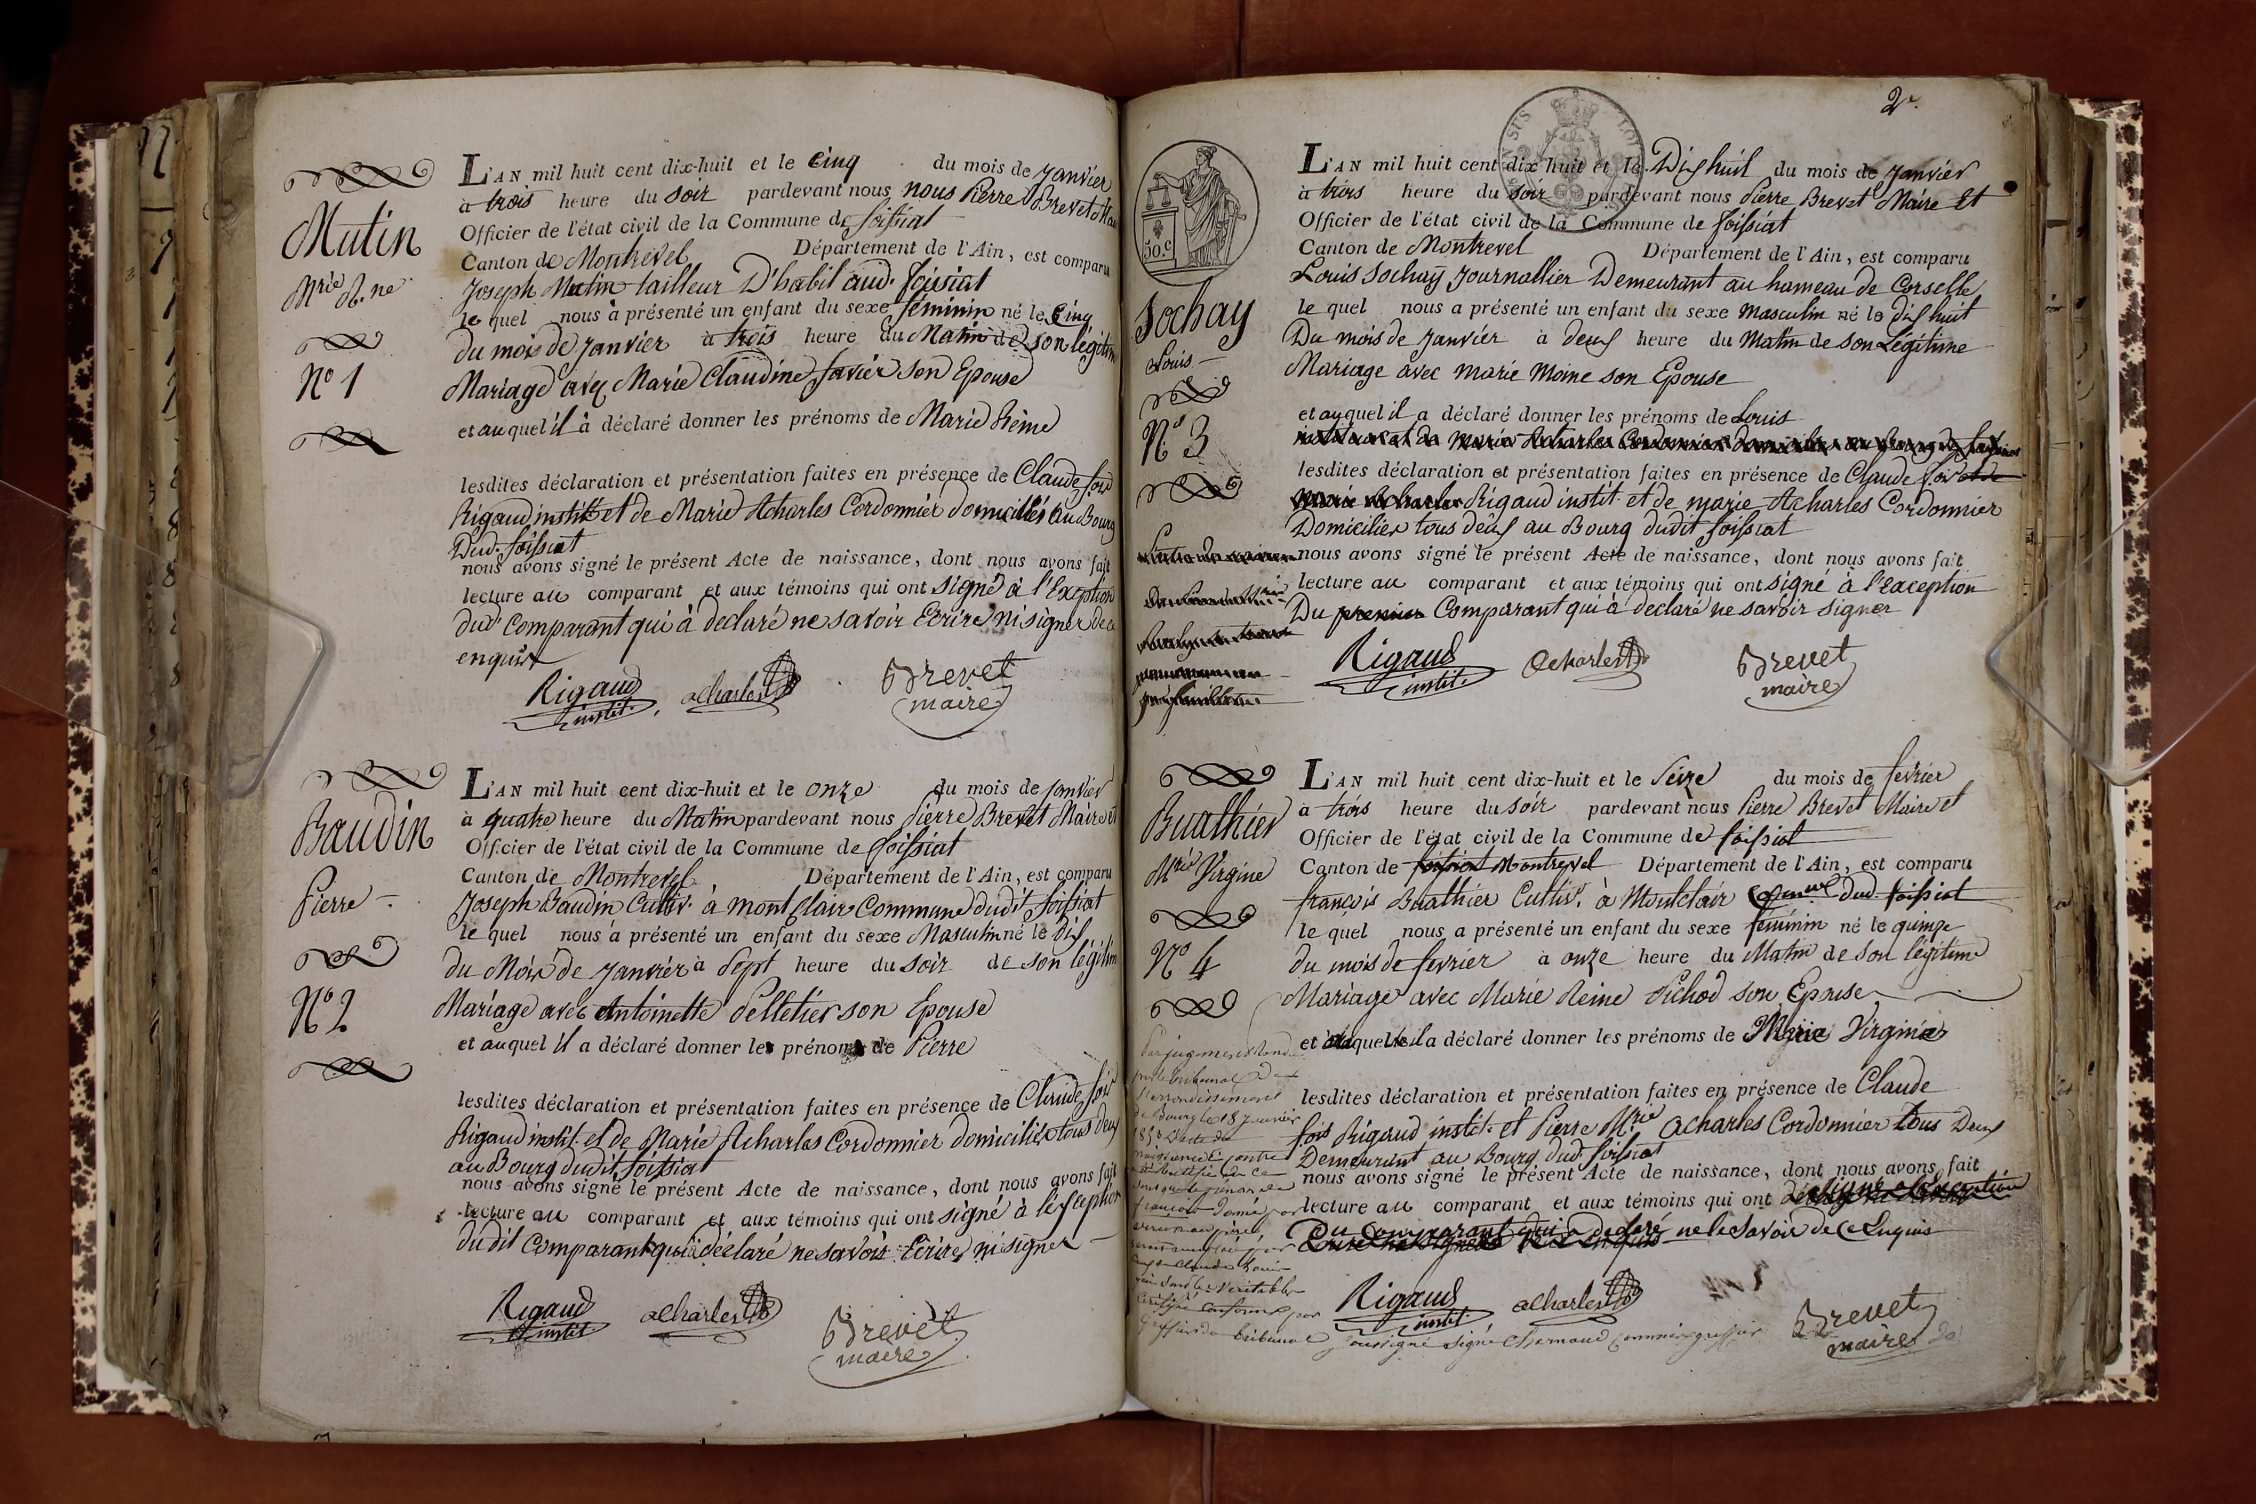 Mutin
Mrie R.ne
No 1
L'AN mil huit cent dix-huit et le Cinq du mois de janvier
à trois heure du soir pardevant nous nous Pierre Brevet
Officier de l'état civil de la Commune de foissiat
Canton de Montrevel Département de l'Ain, est comparu
Joseph Mutin tailleur D'habit aud. foissiat
le quel nous a présenté un enfant du sexe féminin né le Cinq
du mois de janvier à trois heure du Matin de son légitim
Mariage avec Marie Claudine favier son Epouse
et auquel il à déclaré donner les prénoms de Marie Reine
lesdites déclaration et présentation faites en présence de Claude fois
Rigaud instit. et de Marie Acharles Cordonnier domiciliés au Bourg
Dud. foissiat
nous avons signé le présent Acte de naissance, dont nous avons fait
lecture au comparant et aux témoins qui ont signé à l'Exception
dud' Comparant qui à declaré ne savoir Ecrire ni signer de ce
enquis
Rigaud instit. acharles Brevet maire
Baudin
Pierre
No 2
L'AN mil huit cent dix-huit et le onze du mois de janvier
à quatre heure du Matin pardevant nous Pierre Brevet Maire et
Officier de l'état civil de la Commune de foissiat
Canton de Montrevel Département de l'Ain, est comparu
Joseph Baudin Cultiv. à mont Clair Commune dudit foissiat
le quel nous a présenté un enfant du sexe Masculin né le Dix
du Mois de janvier à Sept heure du soir de son légitim
Mariage avec Antoinette Pelletier son Epouse
et auquel il a déclaré donner les prénoms de Pierre
lesdites déclaration et présentation faites en présence de Claude fois
Rigaud instit. et de Marie Acharles Cordonnier domiciliés tous deux
au Bourg dudit foissiat
nous avons signé le présent Acte de naissance, dont nous avons fait
lecture au comparant et aux témoins qui ont signé à l'exception
dudit Comparant qui à déclaré ne savoir Ecrire ni signer
Rigaud instit. acharles Brevet maire
2e.
50.c
Sochay
Louis
No 3
L'AN mil huit cent dix huit et le Dix huit du mois de janvier
à trois heure du soir pardevant nous Pierre Brevet Maire Et
Officier de l'état civil de la Commune de foissiat
Canton de Montrevel Département de l'Ain, est comparu
Louis Sochay Journallier Demeurant au hameau de Corselle
le quel nous a présenté un enfant du sexe masculin né le dix huit
Du mois de janvier à Deux heure du Matin de son Légitime
Mariage avec marie moine son Epouse
et auquel il a déclaré donner les prénoms de Louis
lesdites déclaration et présentation faites en présence de Claude fois
Rigaud instit. et de marie Acharles Cordonnier
Domicilier tous deux au Bourg dudit foissiat
nous avons signé le présent Acte de naissance, dont nous avons fait
lecture au comparant et aux témoins qui ont signé à l'exception
Du premier Comparant qui à declaré ne savoir signer
Rigaud instit. acharles Brevet maire
Buathier
Mrie Virgine
No 4
L'AN mil huit cent dix-huit et le Seize du mois de fevrier
à trois heure du soir pardevant nous Pierre Brevet Maire et
Officier de l'état civil de la Commune de foissiat
Canton de foissiat Montrevel Département de l'Ain, est comparu
françois Buathier Cultiv. à Montclair dud. foissiat
le quel nous a présenté un enfant du sexe féminin né le quinze
du mois de fevrier à onze heure du Matin de son légitime
Mariage avec Marie Reine Pichod son Epouse
et quelle il a déclaré donner les prénoms de Marie Virginie
lesdites déclaration et présentation faites en présence de Claude
fois Rigaud instit. et Pierre Mrie acharles Cordonnier tous Deux
Demeurant au Bourg dud. foissiat
nous avons signé le présent Acte de naissance, dont nous avons fait
lecture au comparant et aux témoins qui ont signé a l'exception
Du Comparant qui a Declaré ne le savoir De Ce Enquis
Par jugement Rendu
par le tribunal de
l'arrondissement
de Bourg le 18 janvier
Rigaud instit. acharles Brevet maire